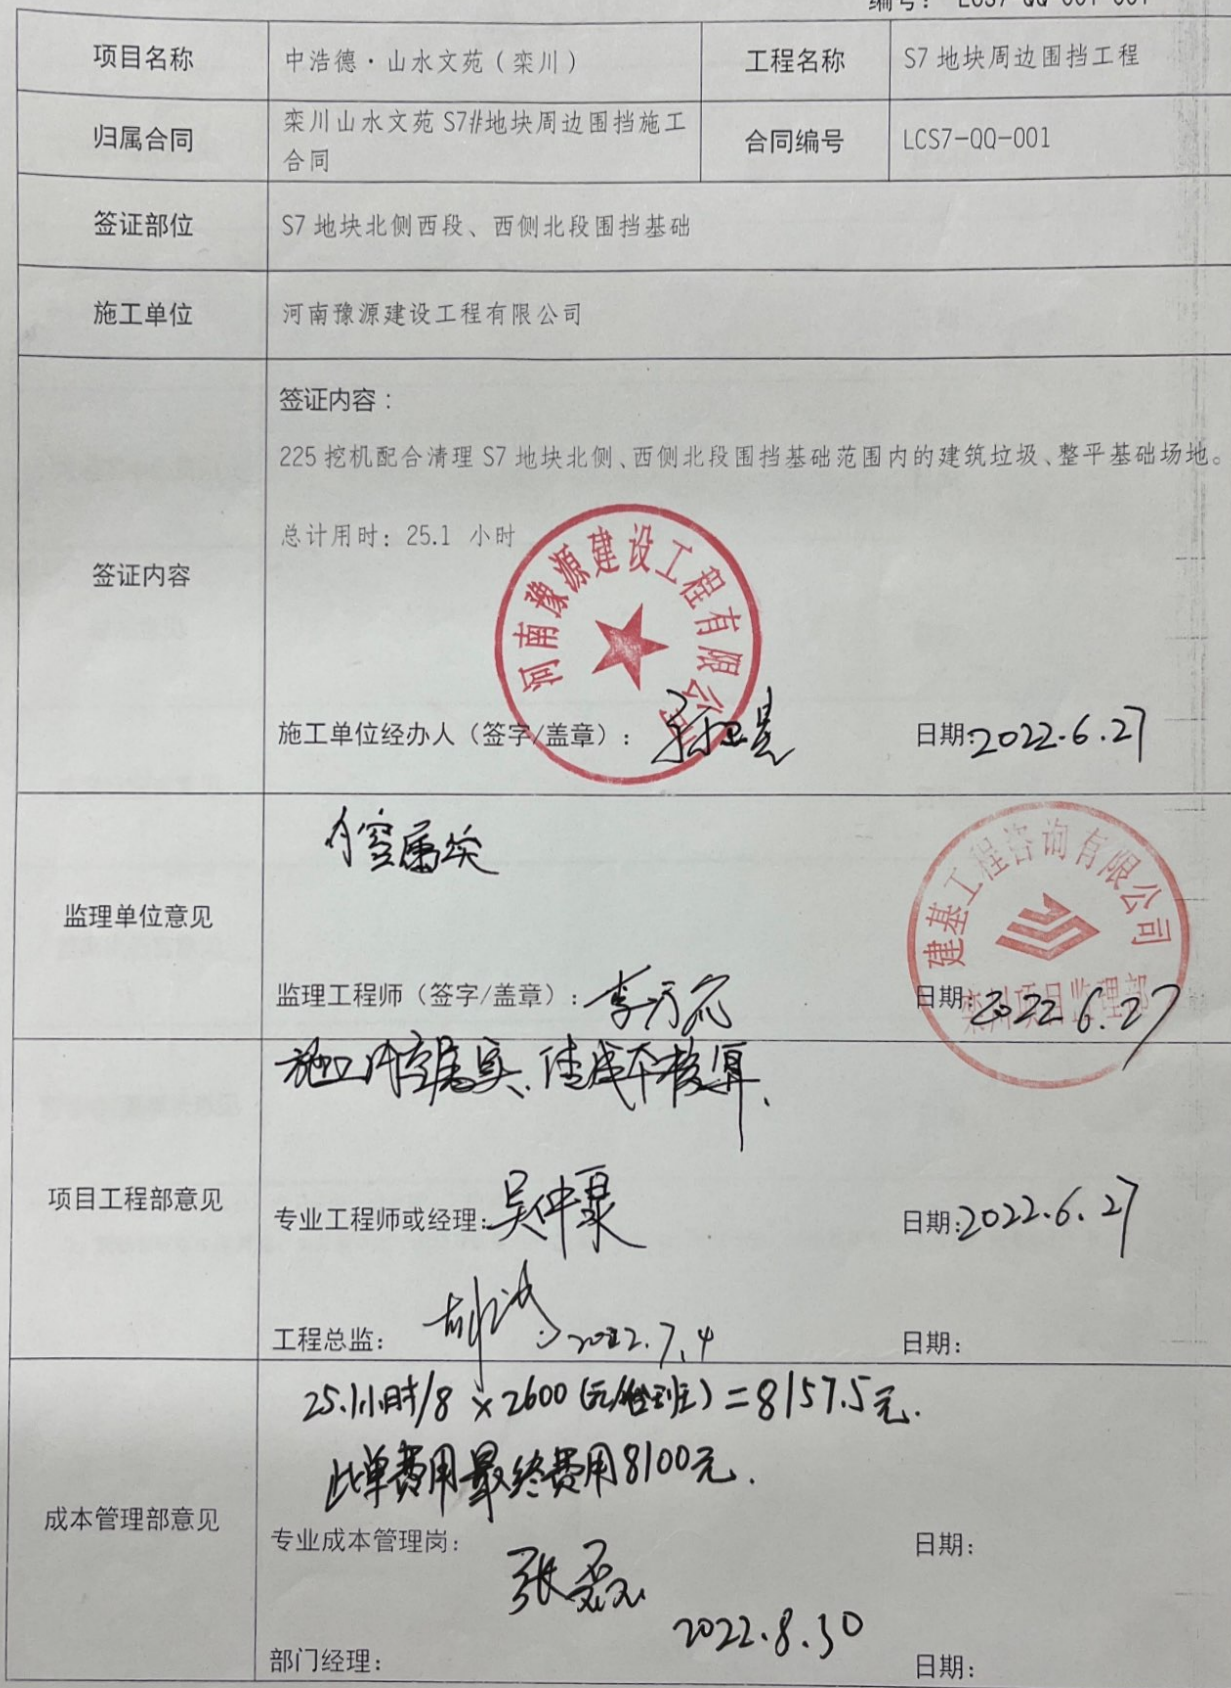 编号： LCS7-QQ-001-001
项目名称 中浩德·山水文苑（栾川） 工程名称 S7 地块周边围挡工程
归属合同 栾川山水文苑 S7#地块周边围挡施工合同 合同编号 LCS7-QQ-001
签证部位 S7 地块北侧西段、西侧北段围挡基础
施工单位 河南豫源建设工程有限公司
签证内容
签证内容：
225 挖机配合清理 S7 地块北侧、西侧北段围挡基础范围内的建筑垃圾、整平基础场地。
总计用时：25.1 小时
河南豫源建设工程有限公司
施工单位经办人（签字/盖章）： 日期：2022.6.27
监理单位意见
内容属实
建基工程咨询有限公司
栾川项目监理部
监理工程师（签字/盖章）： 日期：2022.6.27
项目工程部意见
施工内容属实、请成本核算、
专业工程师或经理： 日期：2022.6.27
工程总监： 2022.7.4 日期：
成本管理部意见
25.1小时/8×2600（元/台班）=8157.5元.
此单费用最终费用8100元.
专业成本管理岗： 日期：
张磊
2022.8.30
部门经理： 日期：